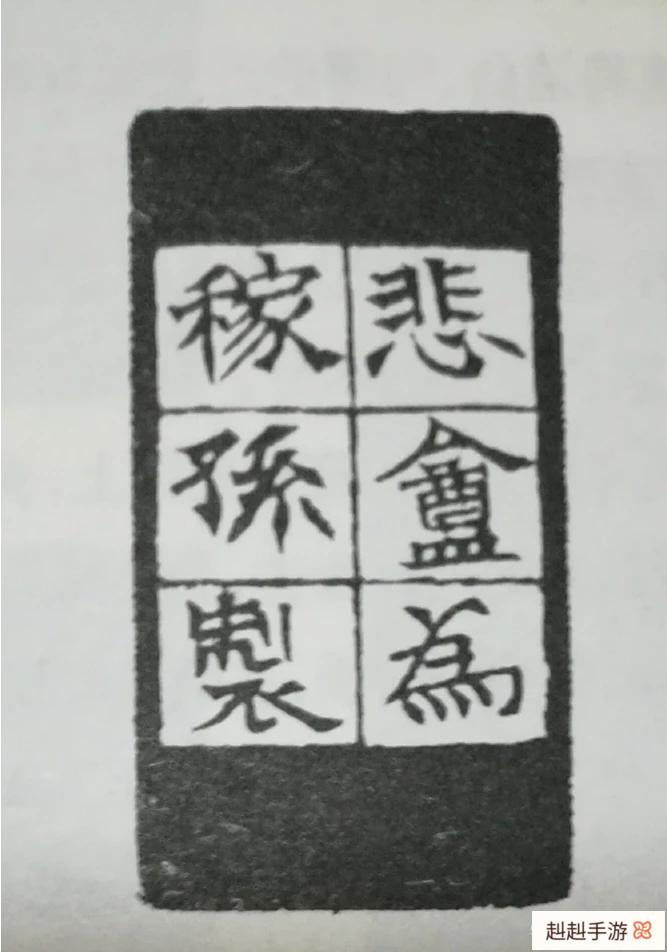 悲盫為
稼孫製
赳赳手游